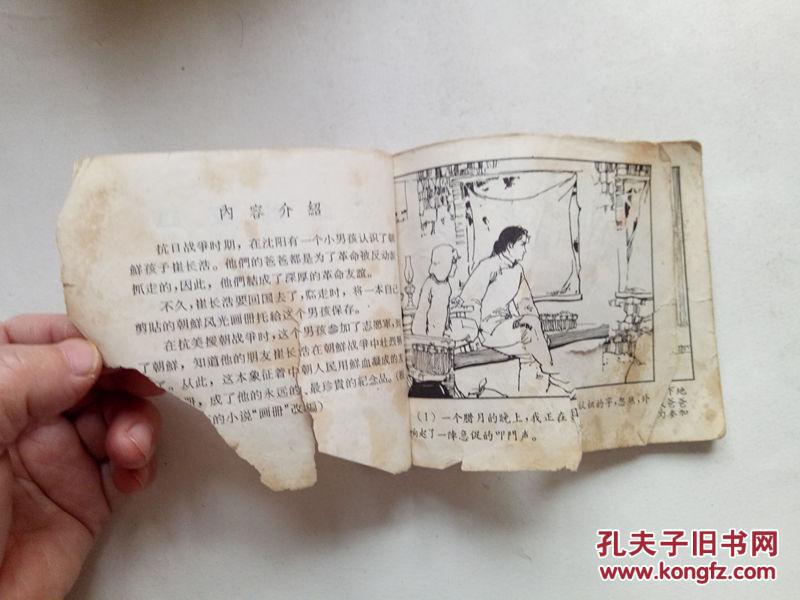 內容介紹
抗日战爭时期，在沈阳有一个小男孩认识了朝
鮮孩子崔长浩。他們的爸爸都是为了革命被反动派
抓走的，因此，他們結成了深厚的革命友誼。
不久，崔长浩要回国去了，临走时，将一本自己
剪貼的朝鮮风光画册托給这个男孩保存。
在抗美援朝战爭时，这个男孩参加了志愿軍，到
了朝鮮，知道他的朋友崔长浩在朝鮮战爭中壮烈
了。从此，这本象征着中朝人民用鮮血凝成的友
册，成了他的永远的、最珍貴的紀念品。（根
的小说“画册”改編）
（1）一个腊月的晚上，我正在
响起了一陣急促的叩門声。
认识的字，忽然，外
下地
爸爸
为参加
孔夫子旧书网
www.kongfz.com